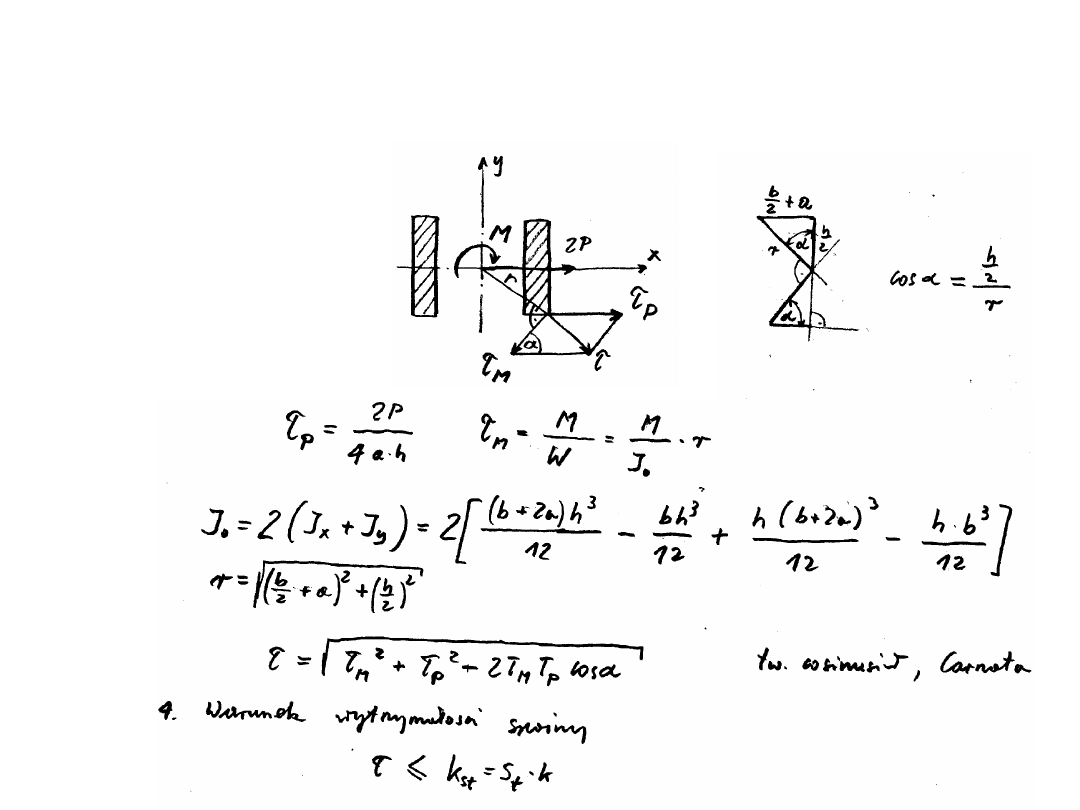 y
M
2P
x
r
τ_P
α
τ_M
τ
b/2 + a
r α h/2
α
cos α = (h/2)/r
τ_P = 2P/(4 a·h) τ_M = M/W = M/J₀ · r
J₀ = 2(J_x + J_y) = 2[(b+2a)h³/12 − bh³/12 + h(b+2a)³/12 − h·b³/12]
r = √((b/2 + a)² + (h/2)²)
τ = √(τ_M² + τ_P² − 2τ_M τ_P cosα) tw. cosinusów, Carnota
4. Warunek wytrzymałości spoiny
τ ⩽ k_st = S_t · k